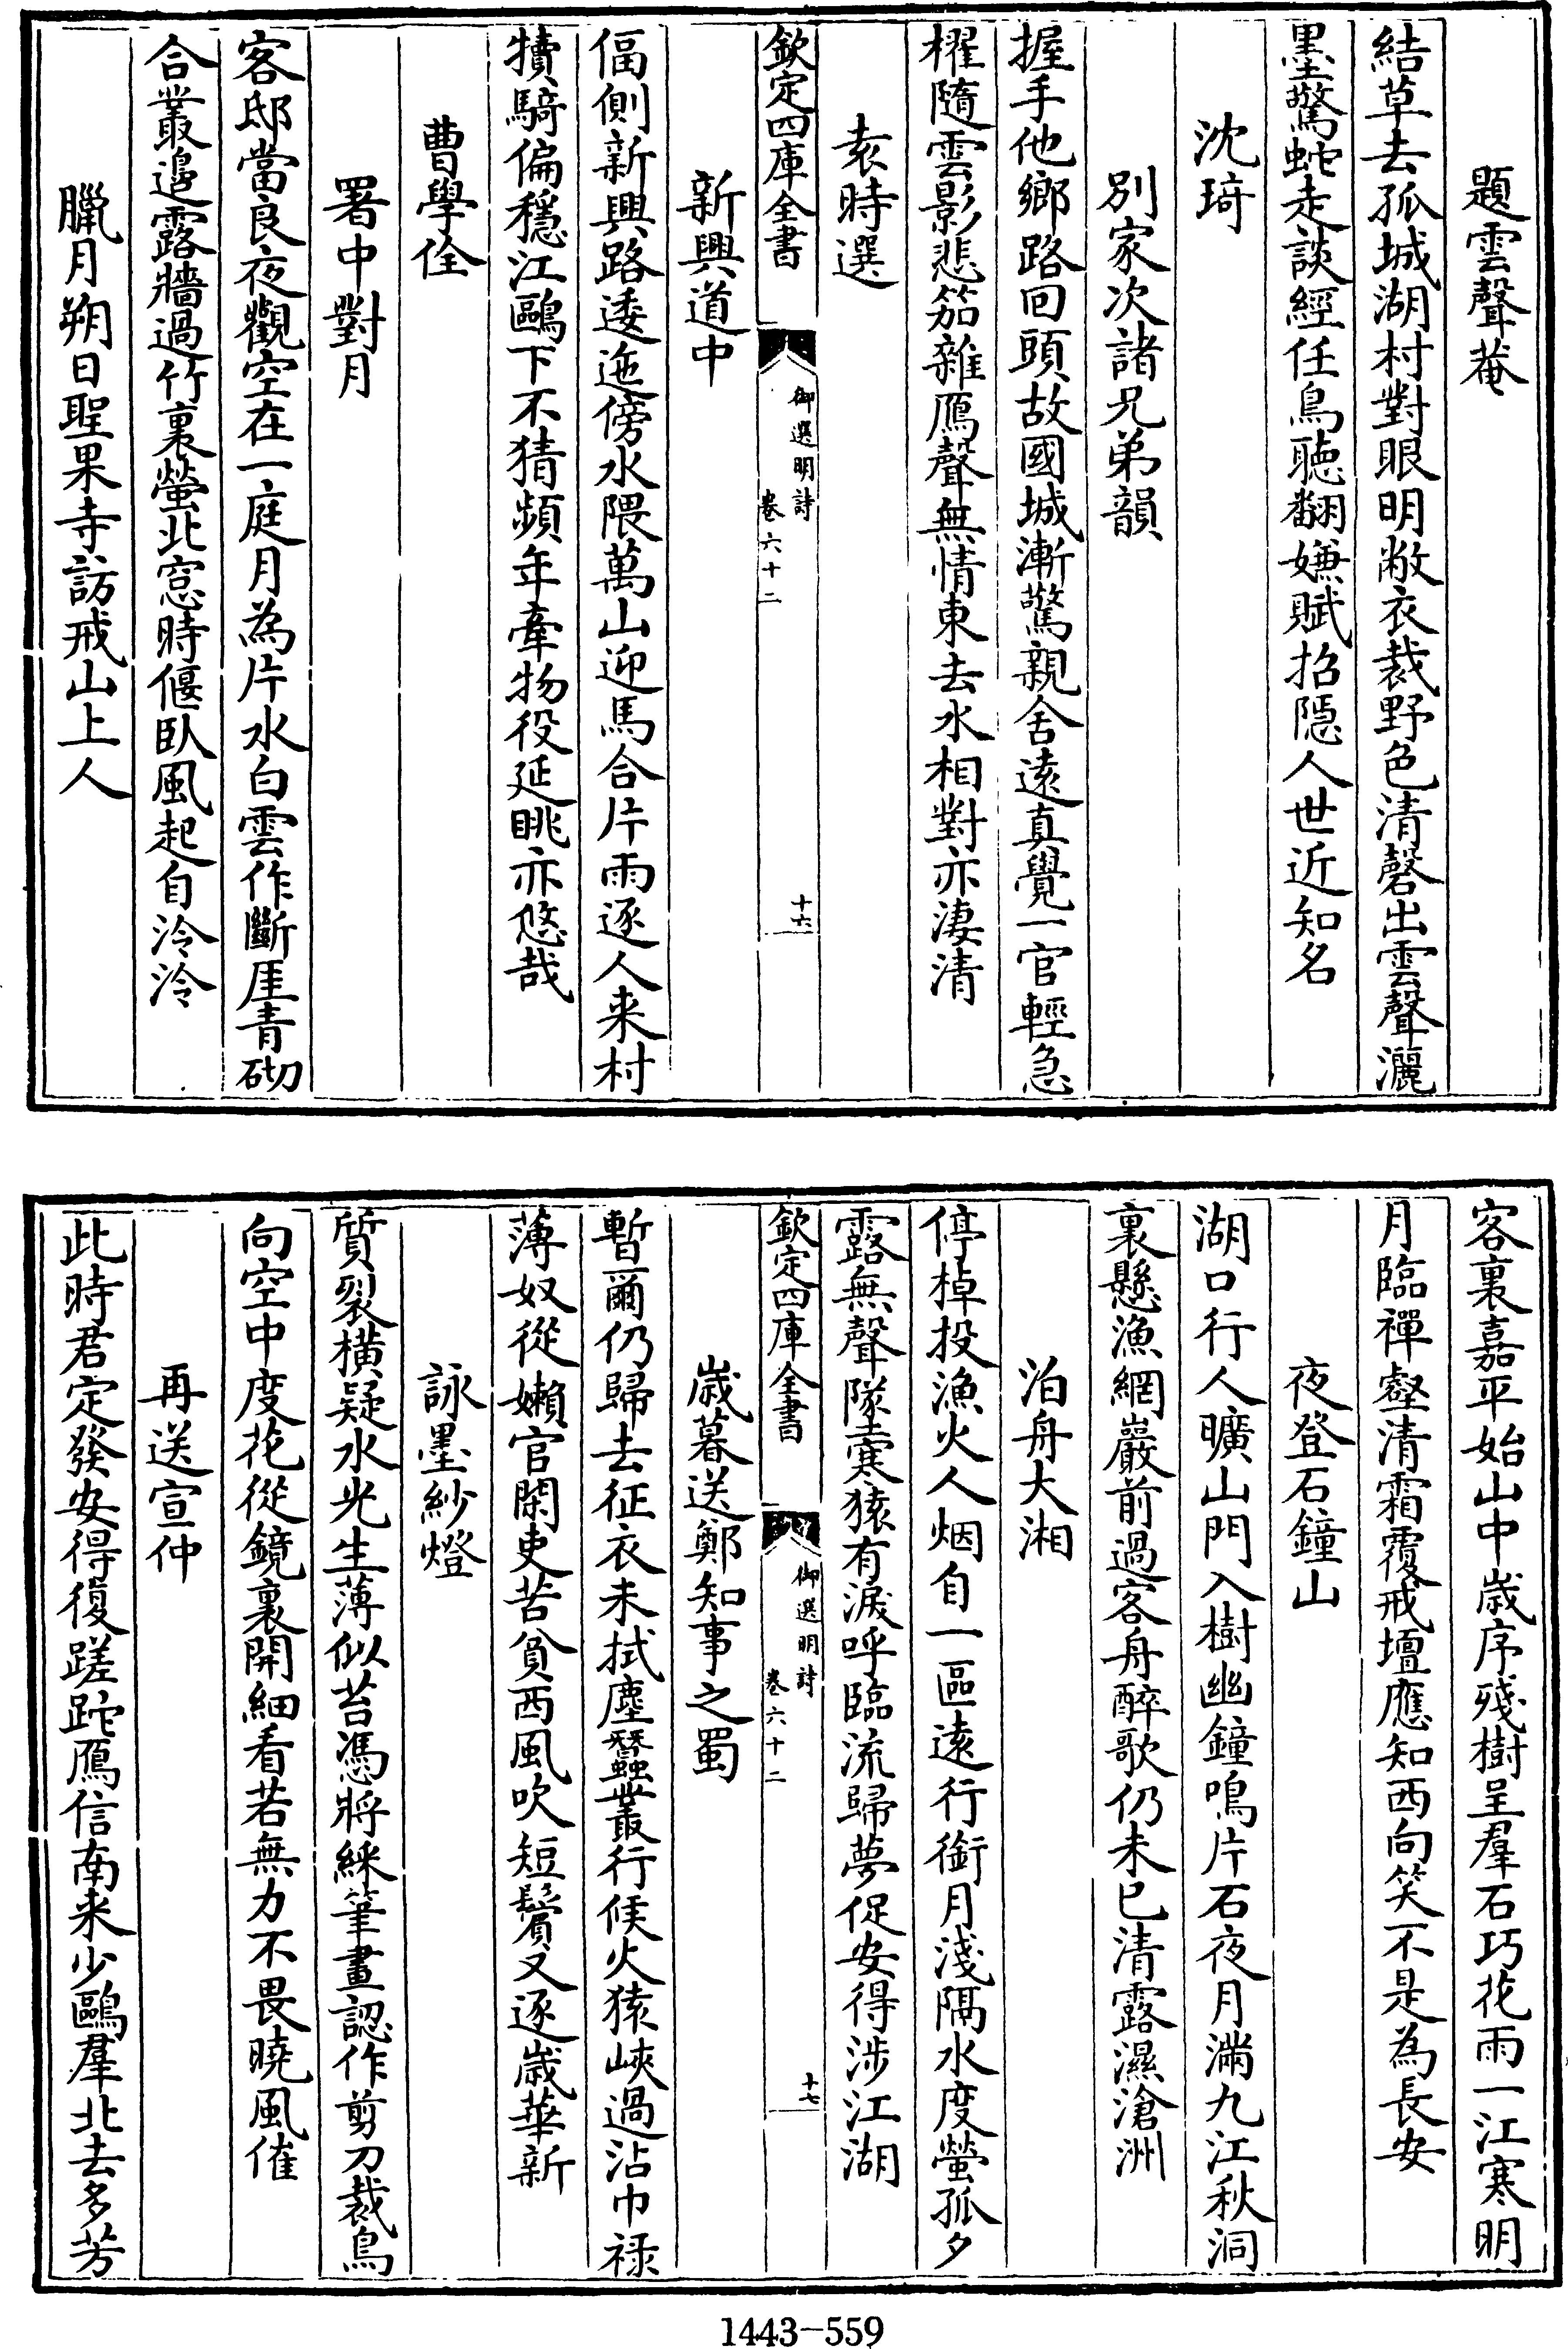 題雲聲菴
結草去孤城湖村對眼明敝衣裁野色清磬出雲聲灑
墨驚蛇走談經任鳥聽翻嫌賦招隱人世近知名
沈琦
別家次諸兄弟韻
握手他鄉路回頭故國城漸驚親舍遠真覺一官輕急
櫂隨雲影悲笳雜鴈聲無情東去水相對亦淒清
袁時選
欽定四庫全書
御選明詩
卷六十二
十六
新興道中
偪側新興路逶迤傍水隈萬山迎馬合片雨逐人来村
犢騎偏穩江鷗下不猜頻年牽物役延眺亦悠哉
曹學佺
署中對月
客邸當良夜觀空在一庭月為片水白雲作斷厓青砌
合叢邉露牆過竹裏螢北窓時偃臥風起自泠泠
臘月朔日聖果寺訪戒山上人
客裏嘉平始山中歳序殘樹呈羣石巧花雨一江寒明
月臨禪壑清霜覆戒壇應知西向笑不是為長安
夜登石鐘山
湖口行人曠山門入樹幽鐘鳴片石夜月滿九江秋洞
裏懸漁網巖前過客舟醉歌仍未已清露濕滄洲
泊舟大湘
停棹投漁火人烟自一區遠行銜月淺隔水度螢孤夕
露無聲墜寒猿有淚呼臨流歸夢促安得涉江湖
欽定四庫全書
御選明詩
卷六十二
十七
歳暮送鄭知事之蜀
暫爾仍歸去征衣未拭塵蠶叢行候火猿峽過沾巾祿
薄奴從嬾官閑吏苦貧西風吹短鬢又逐歳華新
詠墨紗燈
質裂横疑水光生薄似苔馮將綵筆畫認作剪刀裁鳥
向空中度花從鏡裏開細看若無力不畏曉風催
再送宣仲
此時君定發安得復蹉跎鴈信南来少鷗羣北去多芳
1443-559